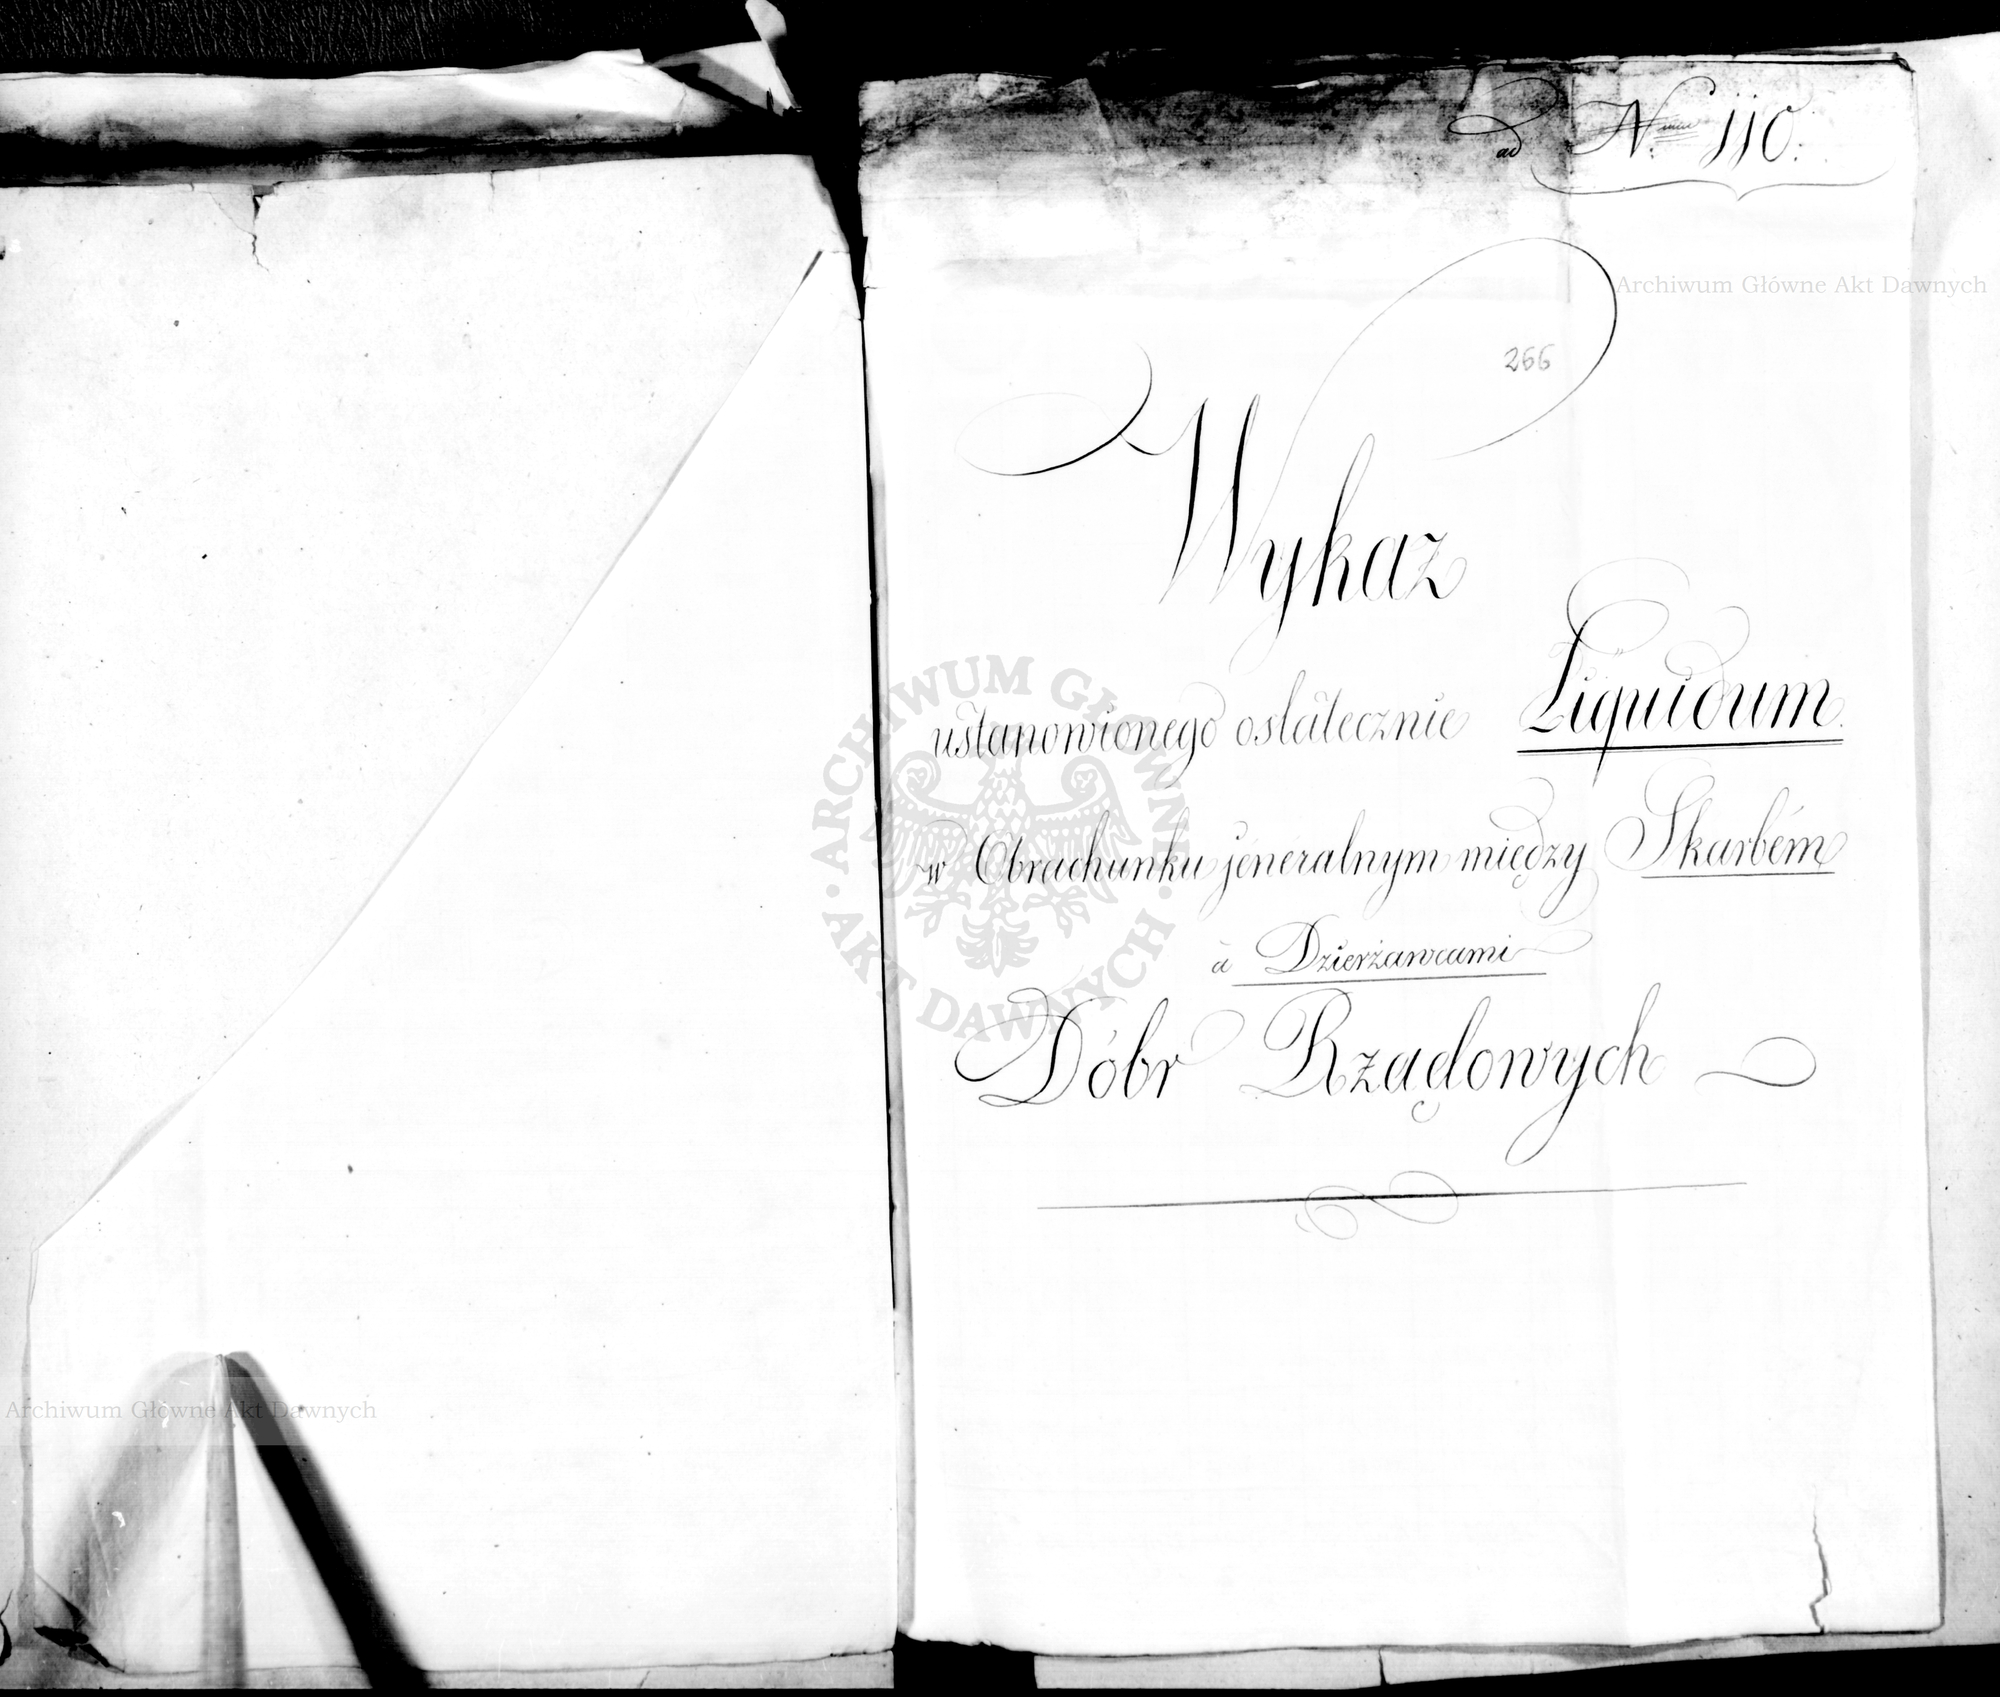 ad Nrum 110.
Archiwum Główne Akt Dawnych
266
Wykaz
ustanowionego ostatecznie Liquidum
w Obrachunku jeneralnym między Skarbém
a Dzierżawcami
Dóbr Rządowych
ARCHIWUM GŁÓWNE · AKT DAWNYCH ·
Archiwum Główne Akt Dawnych